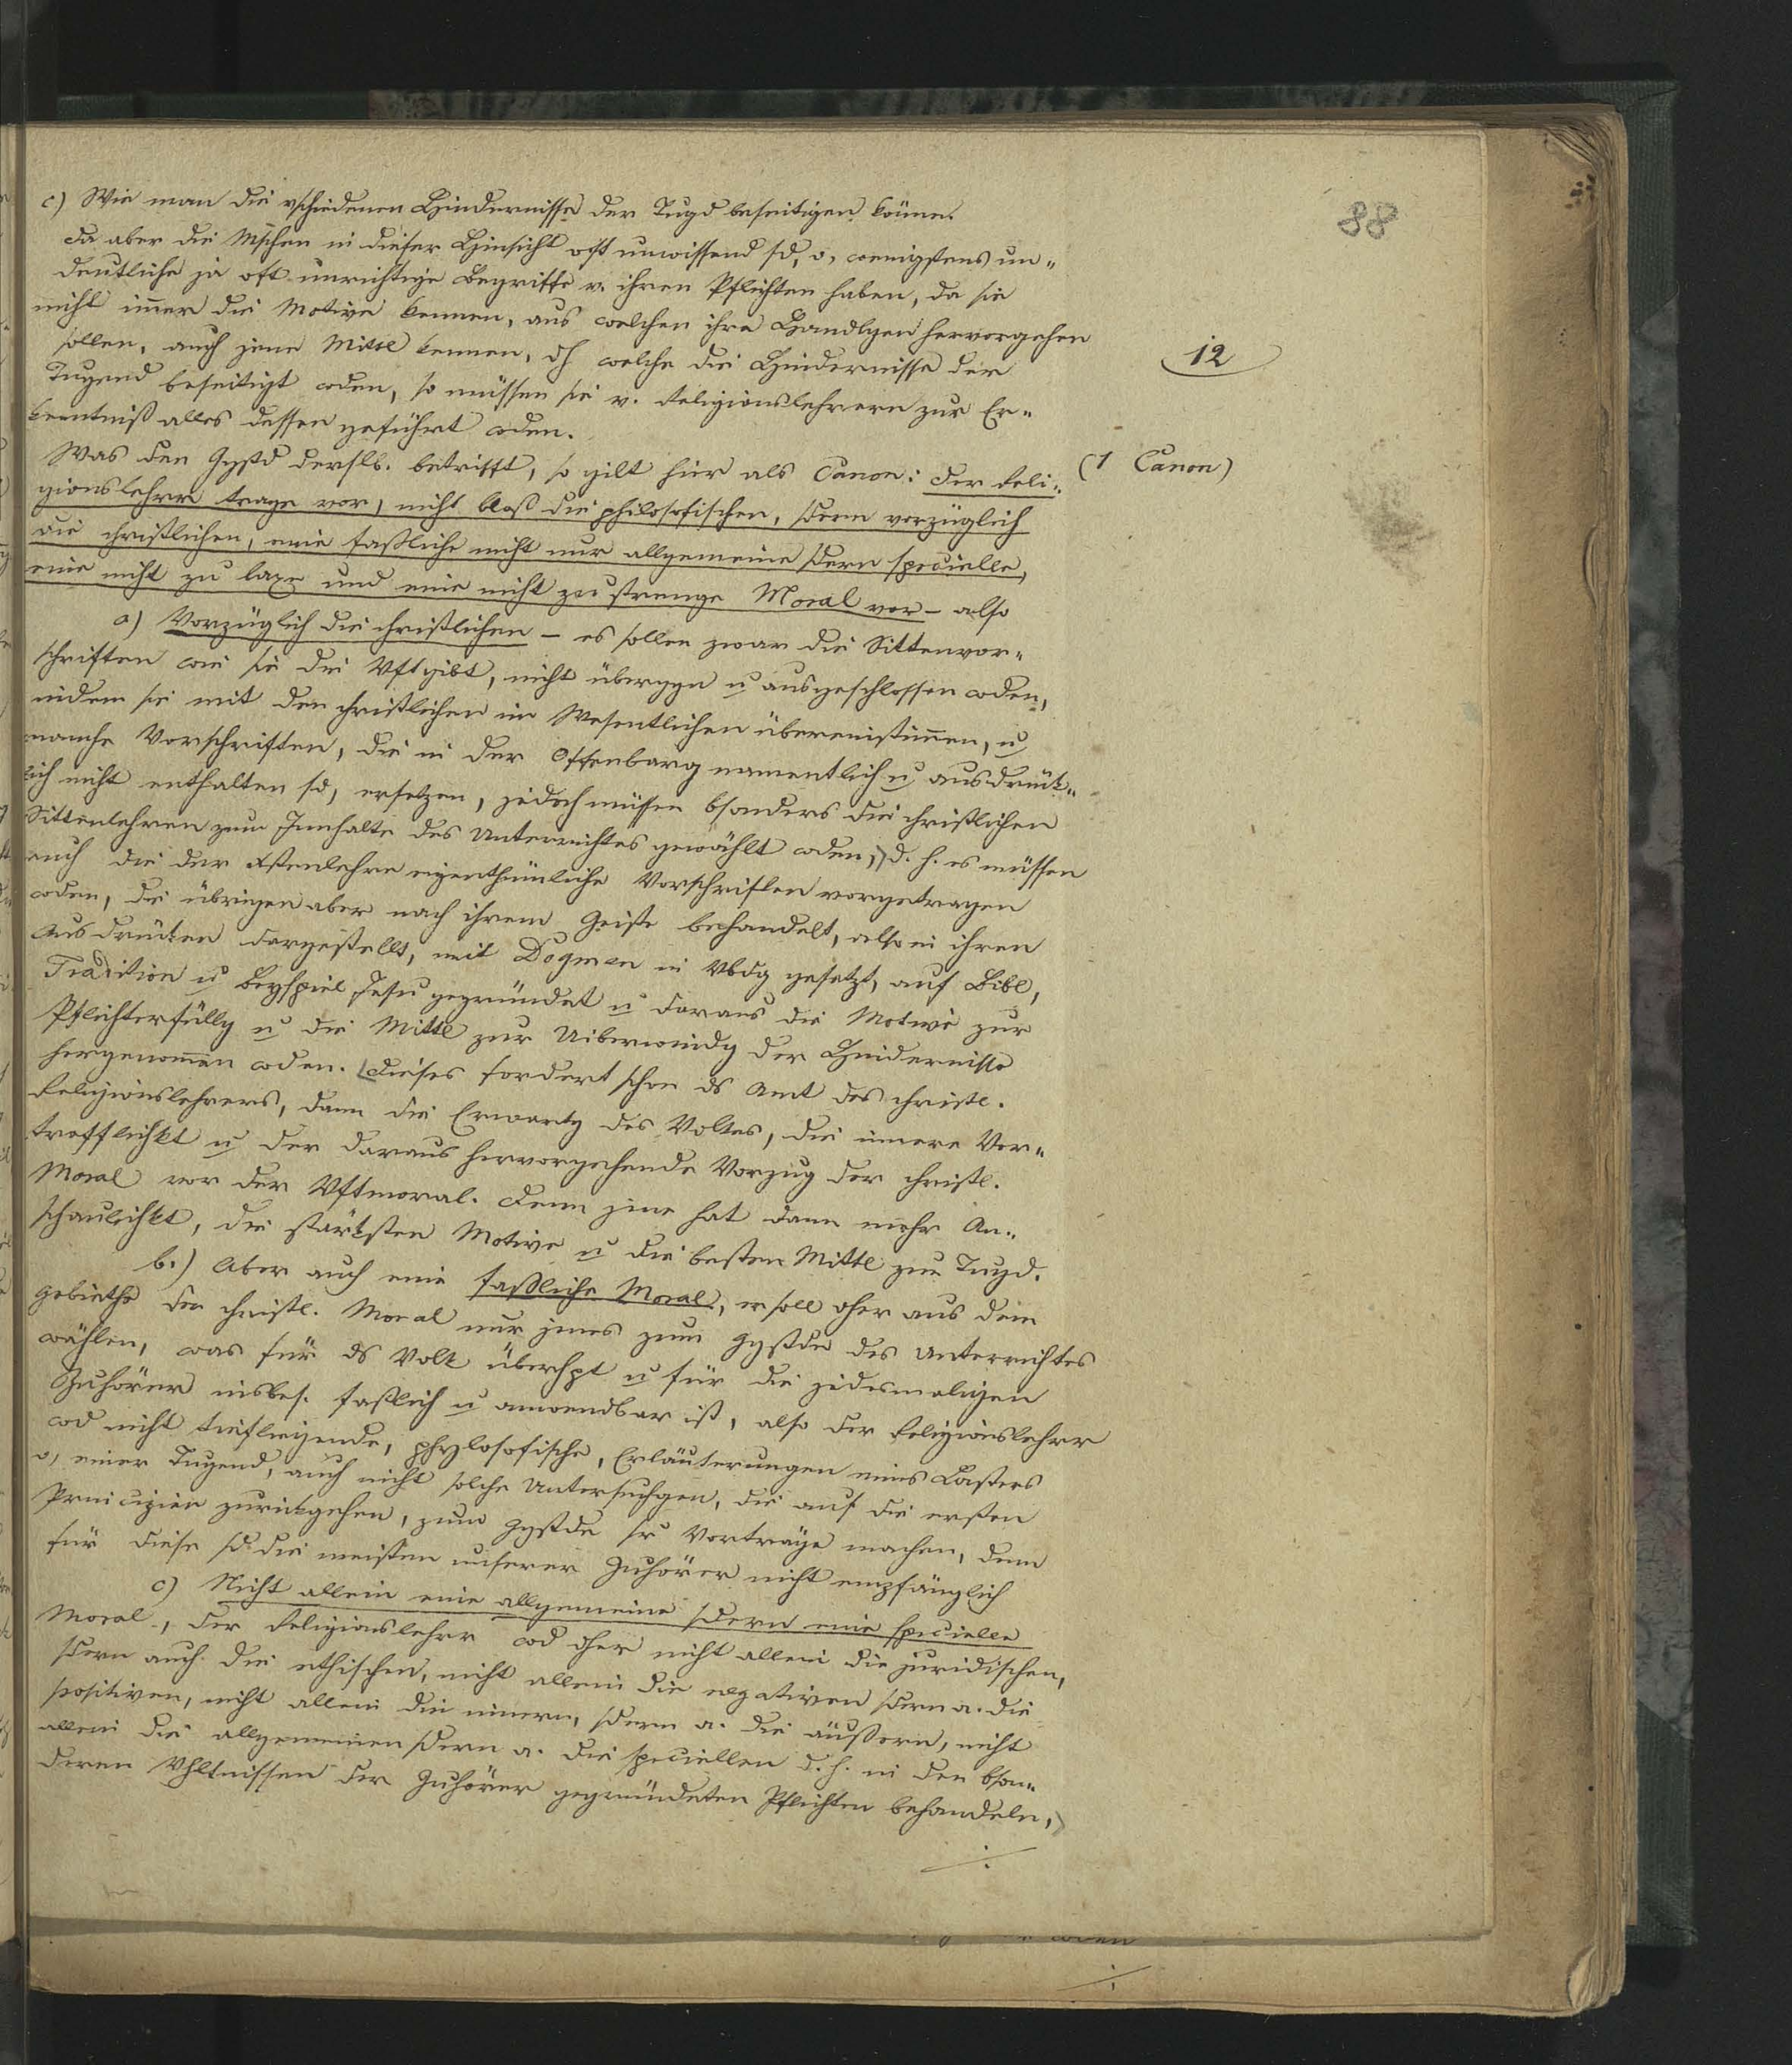 88
c) Wie man die vschiedenen Hindernisse der Tugd beseitigen könne.
Da aber die Mschen in dieser Hinsicht oft unwissend sd, o, wenigstens un-
deutliche ja oft unrichtige Begriffe v. ihren Pflichten haben, da sie
nicht im̄er die Motive kennen, aus welchen ihre Handlgen hervorgehen
sollen, auch jene Mittl kennen, dh welche die Hindernisse der
12
Tugend beseitigt wden, so müssen sie v. Religionslehrern zur Er-
kenntniß alles dessen geführt wden.
Was den Ggstd derslb. betrifft, so gilt hier als Canon: Der Reli-
(1 Canon)
gionslehrer trage vor, nicht bloß die philosofischen, sdern vorzüglich
die christlichen, eine faßliche nicht nur allgemeine sdern specielle,
eine nicht zu laxe und eine nicht zu strenge Moral vor - also
a) Vorzüglich die christlichen - es sollen zwar die Sittenvor-
schriften wie sie die Vft gibt, nicht überggn u ausgeschlossen wden,
indem sie mit den christlichen im Wesentlichen übereinstim̄en, u
manche Vorschriften, die in der Offenbarg namentlich u ausdrük-
lich nicht enthalten sd, ersetzen, jedoch müssen bsonders die christlichen
Sittenlehren zum Innhalte des Unterrichtes gewählt wden, d. h. es müssen
auch die der Xstenlehre eigenthümliche Vorschriften vorgetragen
wden, die übrigen aber nach ihrem Geiste behandelt, also in ihren
Ausdrücken dargestellt, mit Dogmen in Vbdg gesetzt, auf Bibl,
Tradition u Beyspiel Jesu gegründet u daraus die Motive zur
Pflichterfüllg u die Mittl zur Uiberwindg der Hindernisse
hergenom̄en wden. Dieses fordert schon ds Amt des christl.
Religionslehrers, dann die Erwartg des Volkes, die innere Vor-
trefflichkt u der daraus hervorgehende Vorzug der christl.
Moral vor der Vftmoral. Denn jene hat dann mehr An-
schaulichkt, die stärksten Motive u die besten Mittl zur Tugd.
b.) Aber auch eine faßliche Moral, er soll dher aus dem
Gebiethe der christl. Moral nur jenes zum Ggstde des Unterrichtes
wählen, was für ds Volk überhpt u für die jedesmaligen
Zuhörer insbes. faßlich u anwendbar ist, also der Religionslehrer
wd nicht tiefliegende, phylosofische, Erläuterungen eines Lasters
o, einer Tugend, auch nicht solche Untersuchgen, die auf die ersten
Principien zurückgehen, zum Ggstde sr Vorträge machen, denn
für diese sd die meisten unserer Zuhörer nicht empfänglich
c) Nicht allein eine allgemeine sdern eine specielle
Moral, der Religionslehrer wd dher nicht allein die juridischen,
sdern auch die ethischen, nicht allein die negativen sdern a. die
positiven, nicht allein die innern, sdern a. die äußern, nicht
allein die allgemeinen sdern a. die speciellen d. h. in den bson-
deren Vhltnissen der Zuhörer gegründeten Pflichten behandeln,